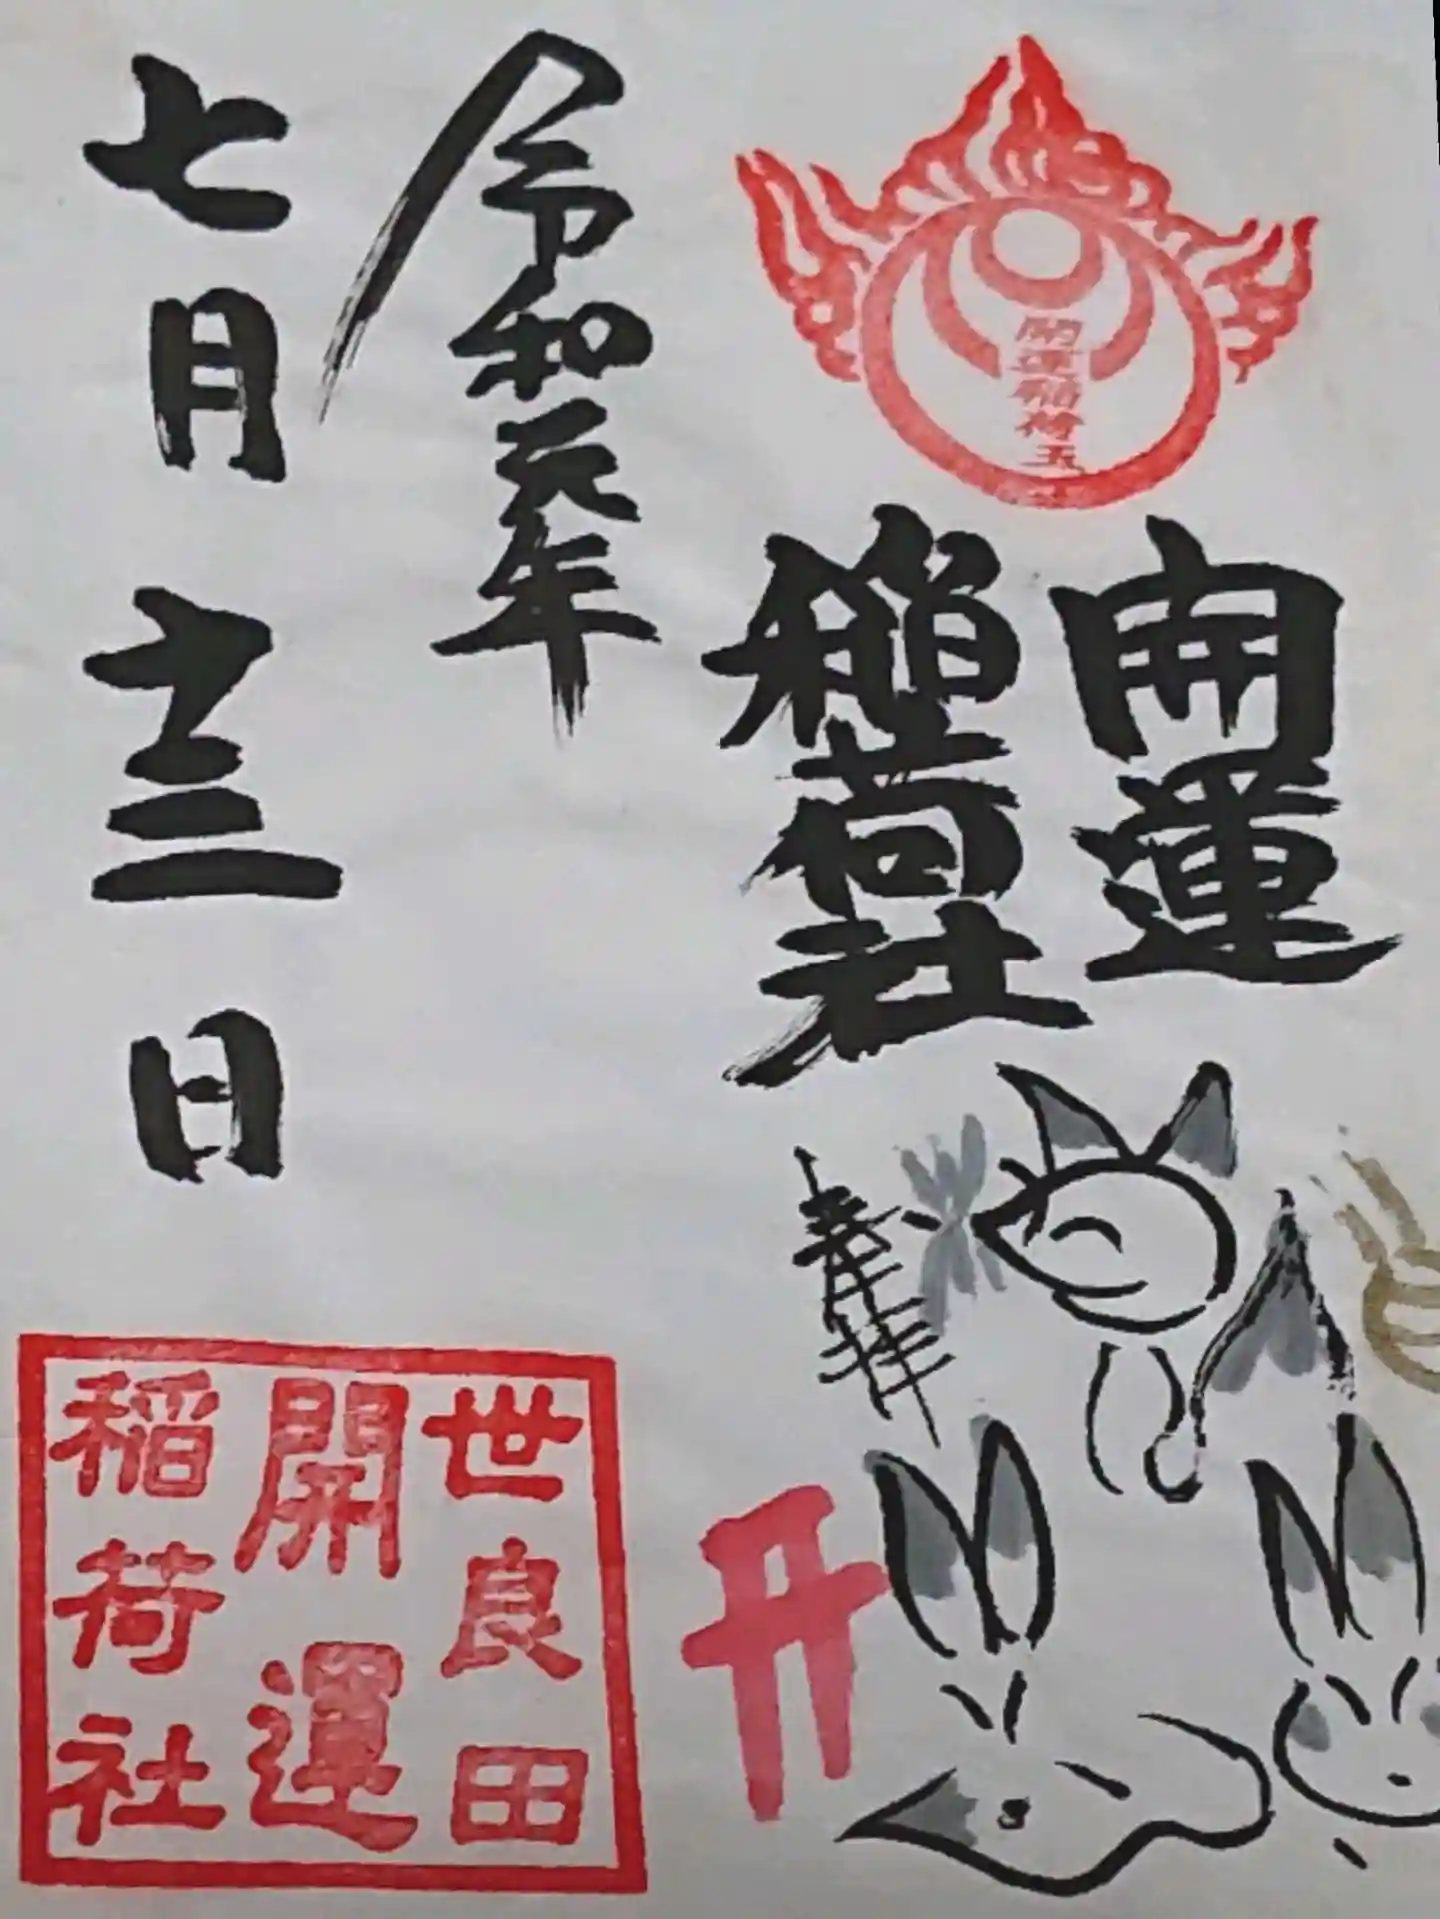 開運稲荷玉
開運
稲荷社
奉拝
令和元年
七月十三日
世良田
開運
稲荷社